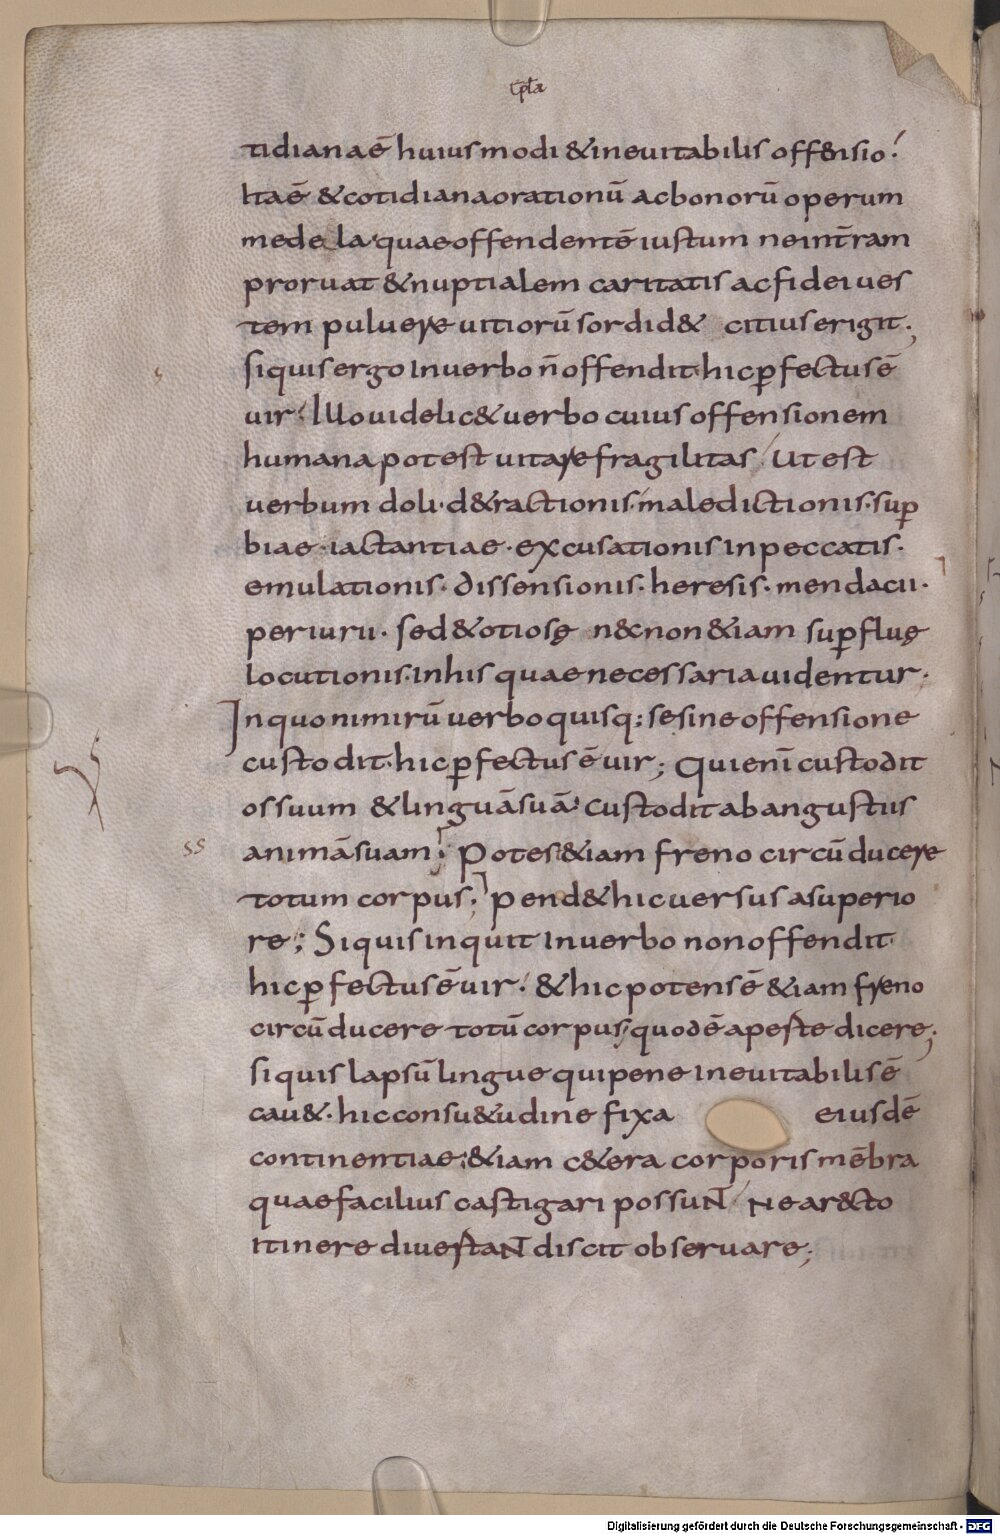 tidianaē huiusmodi & ineuitabilis offensio.
Itaē & cotidiana orationū ac bonorū operum
medela quae offendentē iustum ne intr̄am
proruat & nuptialem caritatis ac fidei ues
tem puluere uitiorū sordid& citius erigit.
si quis ergo In uerbo n̄ offendit. hic ꝑfectus ē
uir. Illo uidelic& uerbo cuius offensionem
humana potest uitare fragilitas Ut est
uerbum doli. d&ractionis. maledictionis. suꝑ
biae. iactantiae. excusationis In peccatis.
emulationis. dissensionis. heresis. mendacii.
periurii. sed & otiosę n&non &iam suꝑfluę
locutionis. In his quae necessaria uidentur.
In quo nimirū uerbo quisq; se sine offensione
custodit. hic ꝑfectus ē uir; Qui enī custodit
os suum & linguā suā custodit ab angustiis
ss
animā suam; Potes &iam freno circūducere
totum corpus; Pend& hic uersus a superio
re; Si quis inquit In uerbo non offendit
hic ꝑfectus ē uir. & hic potens ē &iam freno
circūducere totū corpus; quod ē apeste dicere;
si quis lapsū lingue qui pene Ineuitabilis ē
cau&. hic consu&udine fixa eiusdē
continentiae &iam c&era corporis mēbra
quae facilius castigari possunt Ne ar&to
Itinere diuestant discit obseruare;
Digitalisierung gefördert durch die Deutsche Forschungsgemeinschaft - DFG